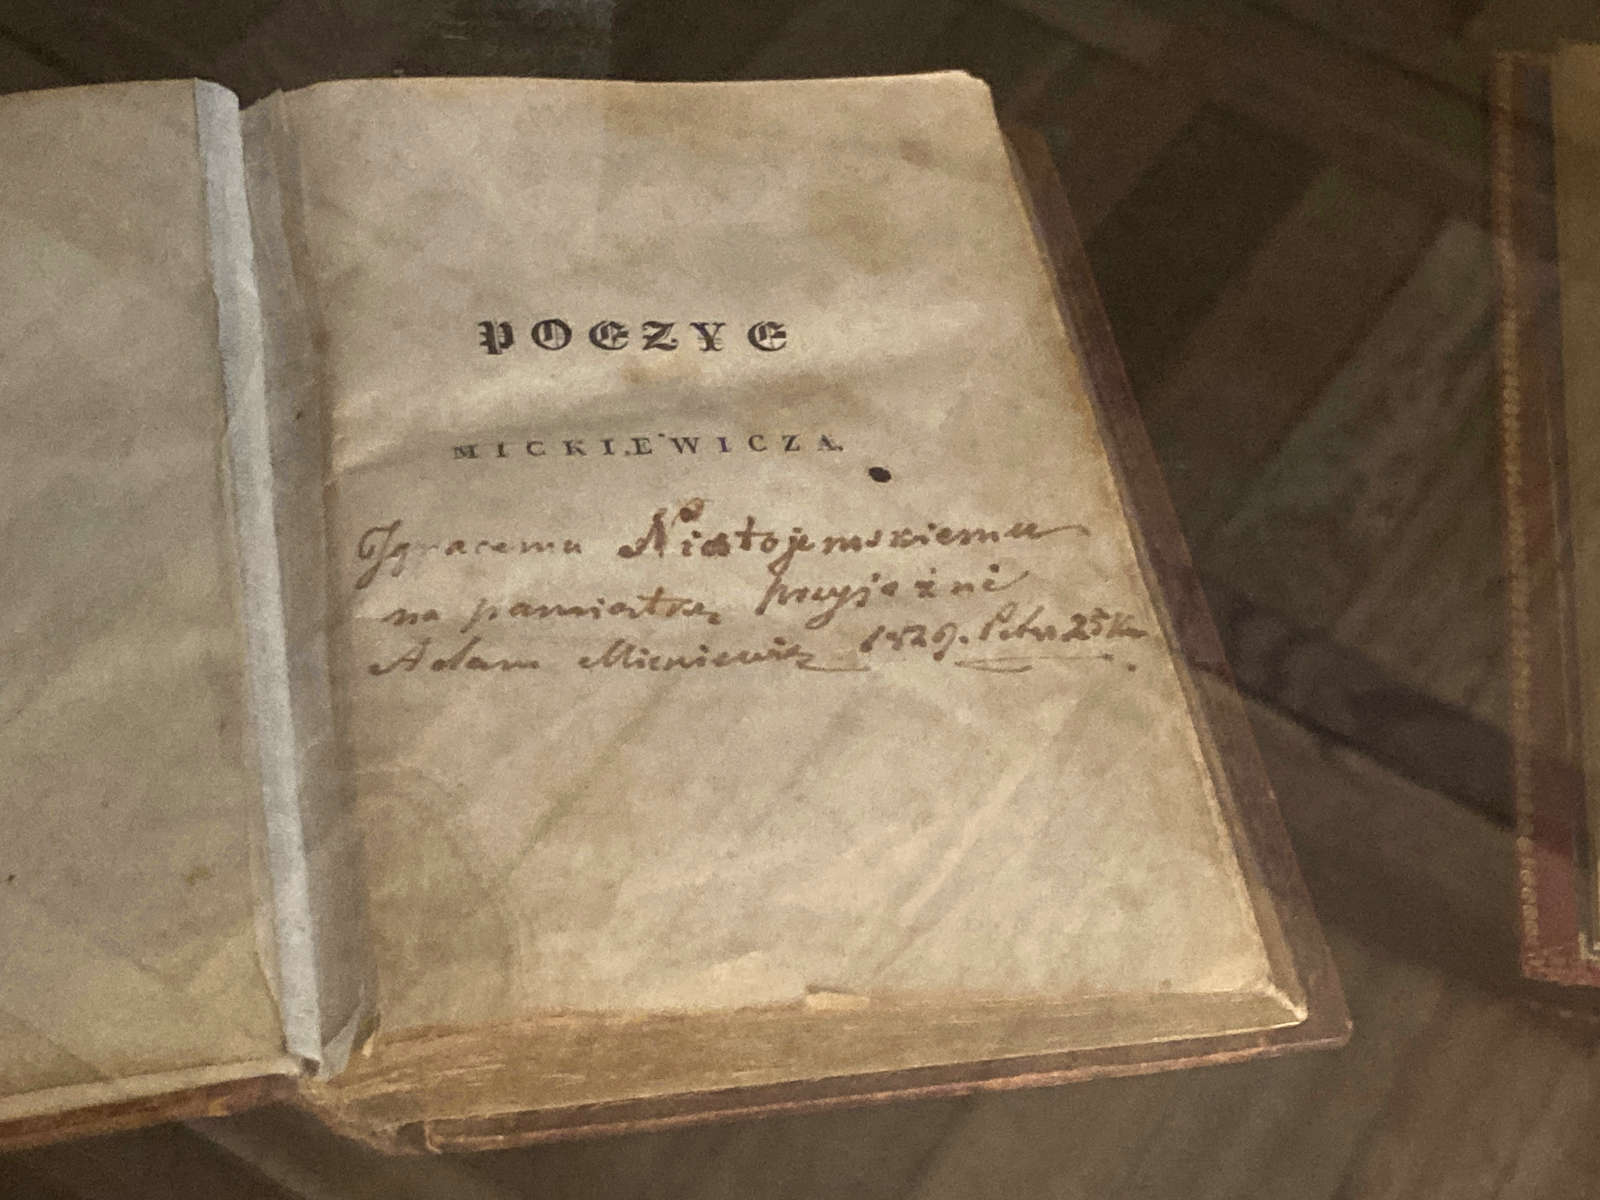 POEZYE
MICKIEWICZA.
Ignacemu Niatojemskiemu
na pamiatkę przyjażni
Adam Mickiewicz 1829. Petr 25 Kw